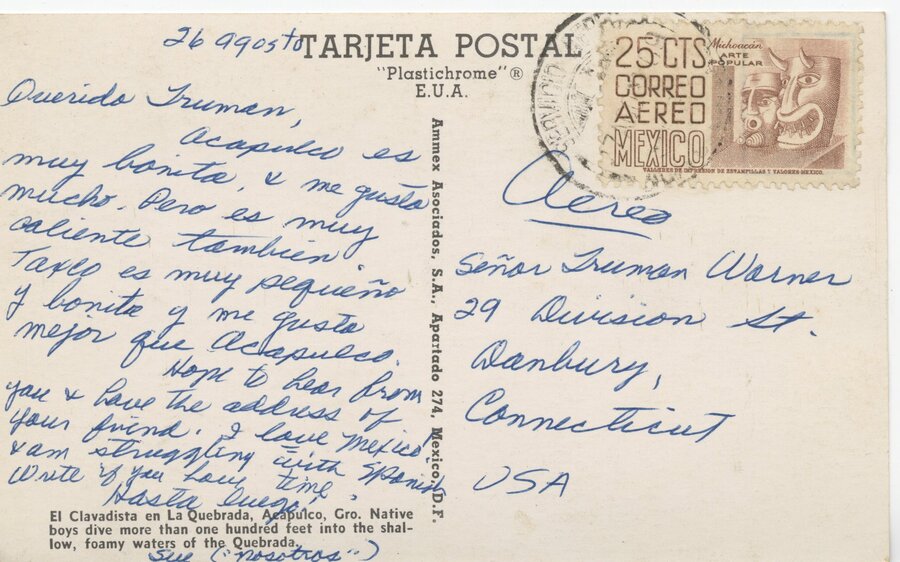 26 agosto
TARJETA POSTAL
"Plastichrome"®
E.U.A.
Querido Truman,
Acapulco es
muy bonita, & me gusta
mucho. Pero es muy
caliente también
Taxco es muy pequeño
y bonita y me gusta
mejor que Acapulco.
Hope to hear from
you & have the address of
your friend. I love Mexico,
& am struggling with Spanish
Write if you have time.
Hasta luego,
Sue ("nosotros")
El Clavadista en La Quebrada, Acapulco, Gro. Native
boys dive more than one hundred feet into the shal-
low, foamy waters of the Quebrada.
Ammex Asociados, S.A., Apartado 274, Mexico, D.F.
25 CTS
CORREO
AEREO
MEXICO
Michoacán
ARTE
POPULAR
TALLERES DE IMPRESION DE ESTAMPILLAS Y VALORES-MEXICO.
Aereo
Señor Truman Warner
29 Division St.
Danbury,
Connecticut
USA